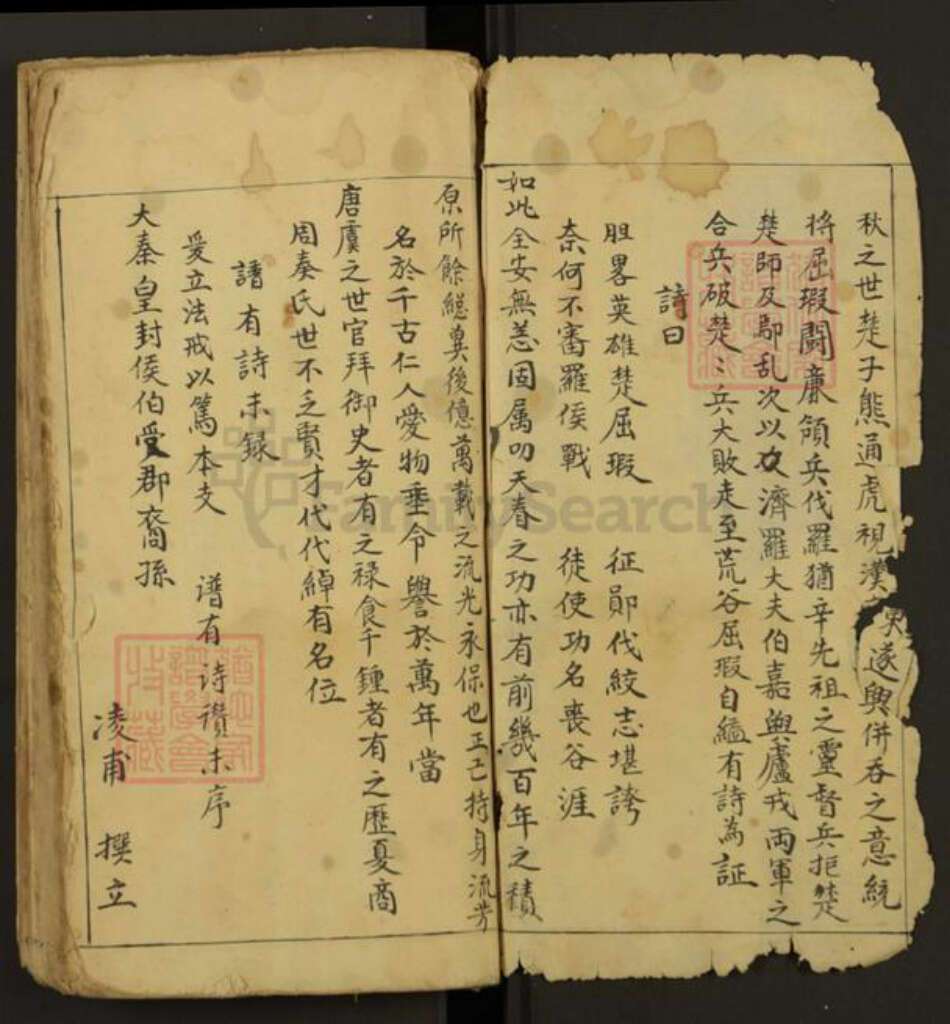 秋之世楚子熊通虎視漢東遂興併吞之意統
將屈瑕鬪亷領兵伐羅猶辛先祖之靈督兵拒楚
楚師及鄢乱次以次濟羅大夫伯嘉與盧戎兩軍之
合兵破楚〻兵大敗走至荒谷屈瑕自縊有詩為証
詩曰
胆畧英雄楚屈瑕 征鄖伐絞志堪誇
奈何不審羅侯戰 徒使功名喪谷涯
如此全安無恙固属叨天眷之功亦有前幾百年之積
原所餘緫冀後億萬載之流光永保也正己持身流芳
名於千古仁人愛物垂令譽於萬年當
唐虞之世官拜御史者有之禄食千鍾者有之歷夏商
周秦氏世不乏賢才代代綽有名位
譜有詩未録
爰立法戒以篤本支 谱有诗讚未序
大秦皇封侯伯受郡裔孫
凌甫 撰立
FamilySearch